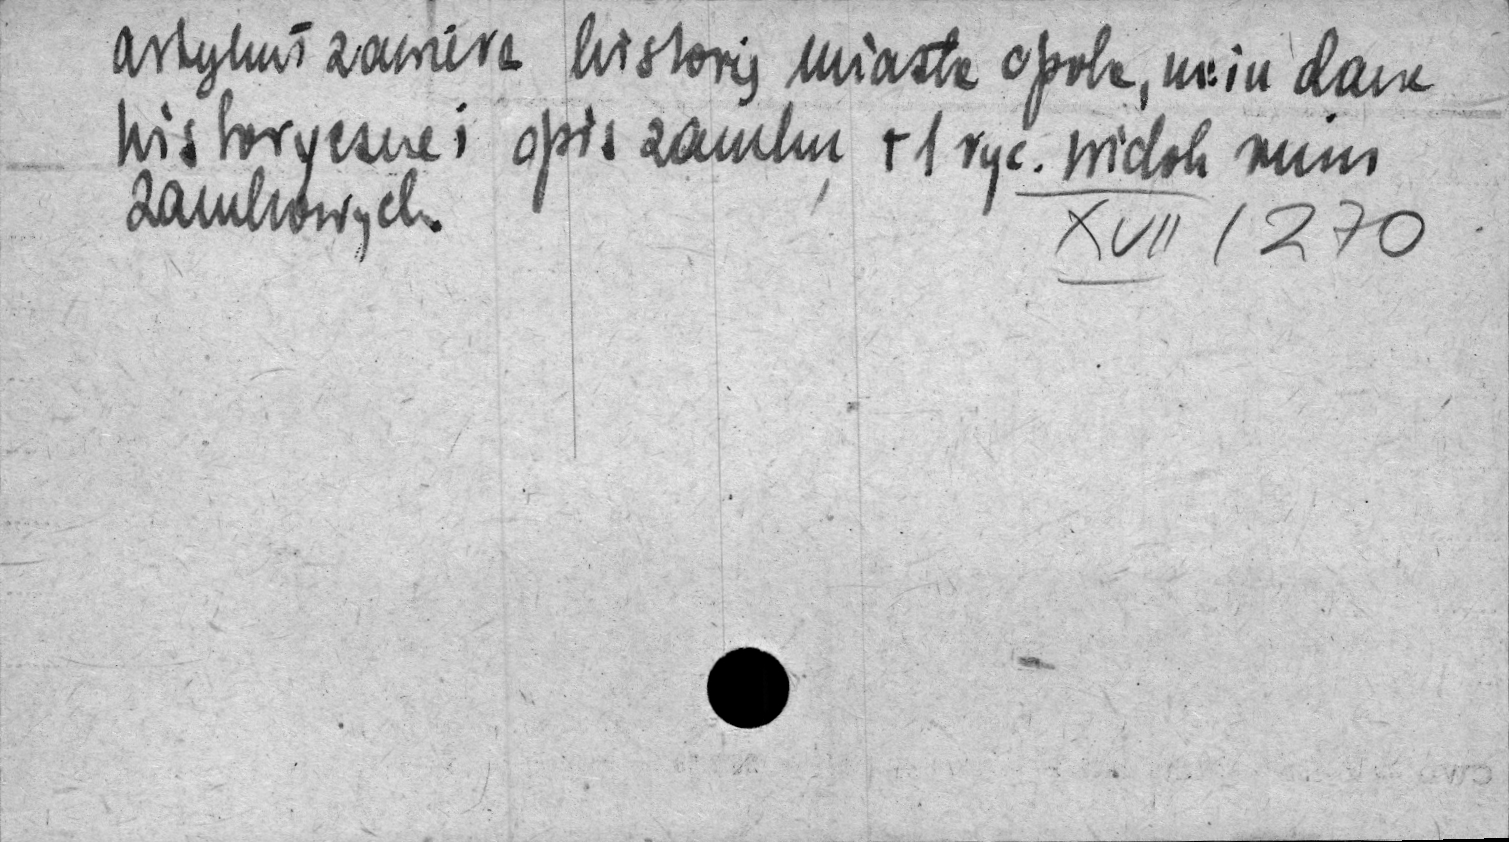 Artykuł zawiera historię miasta Opole, m.in dane
historyczne i opis zamku + 1 ryc. widok ruin
zamkowych.
XVII / 270